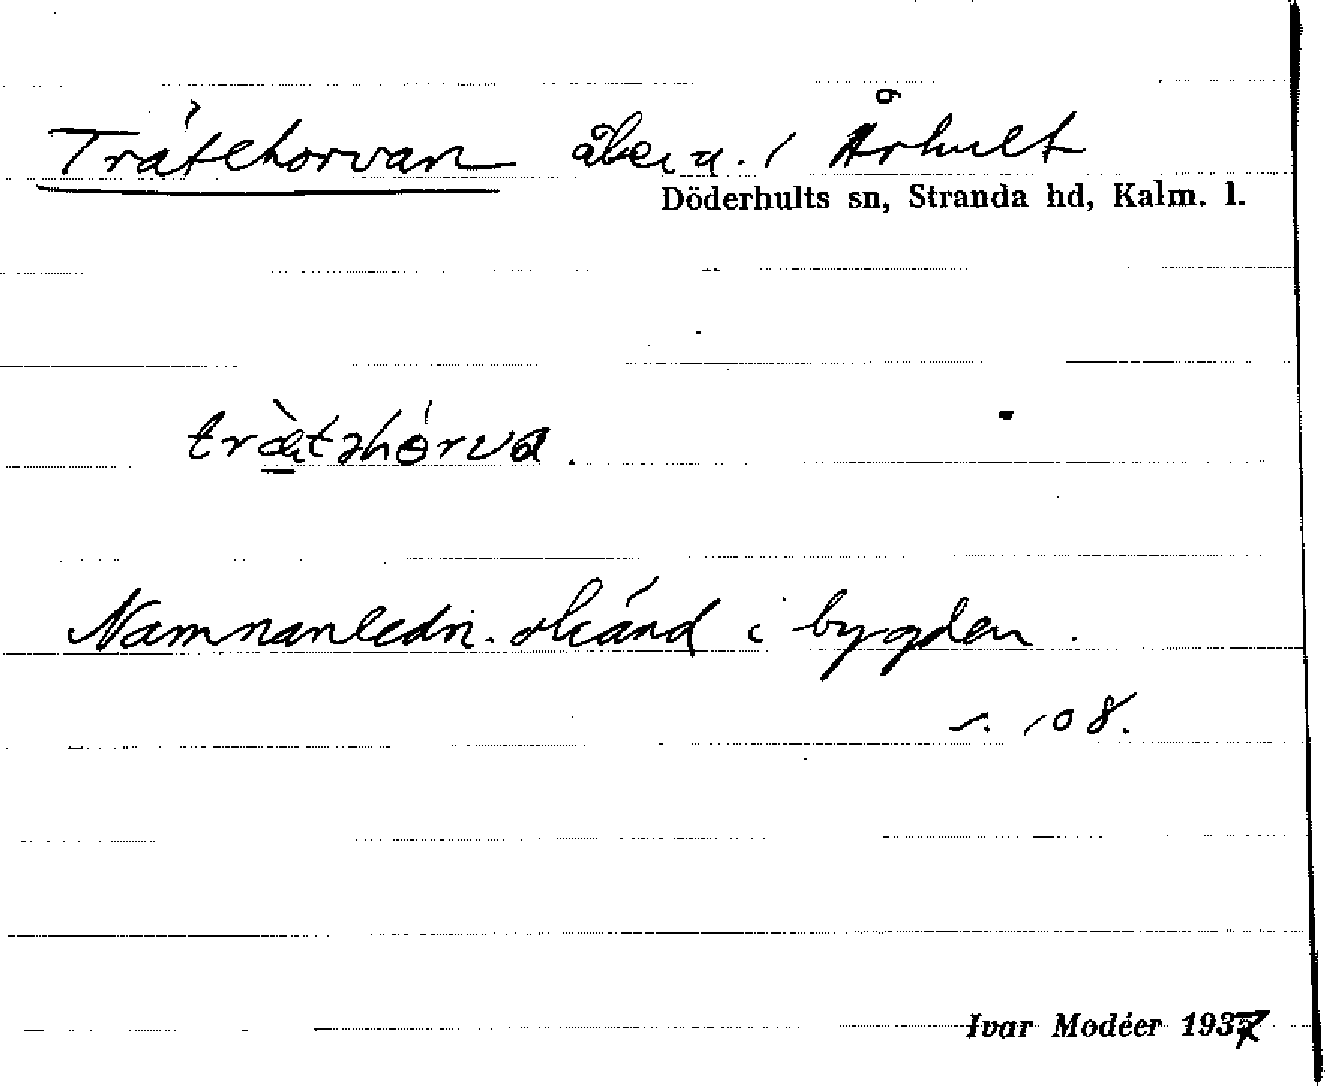 Trätehorvan åker u. / Århult
Döderhults sn, Stranda hd, Kalm. l.
trætəhorva.
Namnanledn. okänd i bygden.
s. 108.
Ivar Modéer 1937